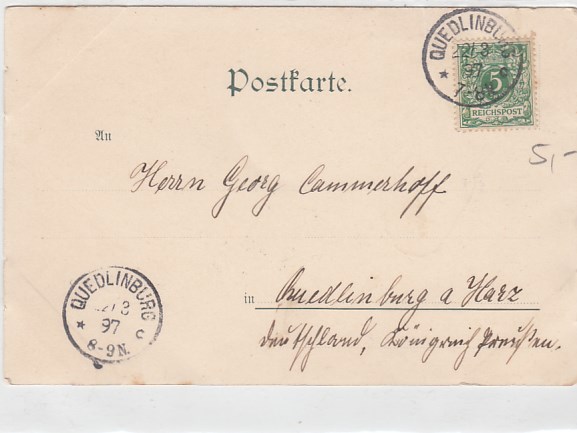 QUEDLINBURG
22/3
97
7-8N.
c
5
REICHSPOST
Postkarte.
An
5,-
Herrn Georg Cammerhoff
in Quedlinburg a Harz
Deutschland, Königreich Preußen.
QUEDLINBURG
22/3
97
8-9N.
c